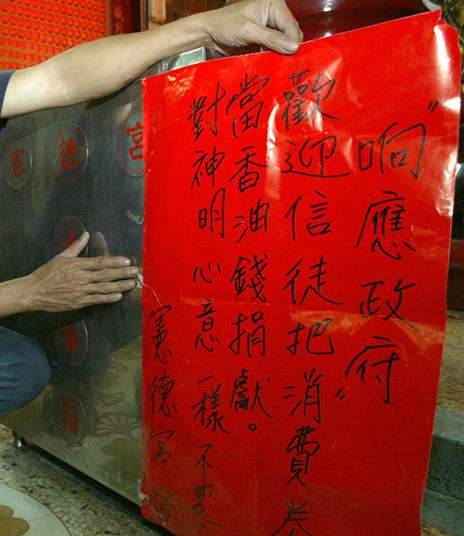 "响應政府"
歡迎信徒把消費券
當香油錢捐獻。
對神明心意一樣不變
憲德宮
德宮